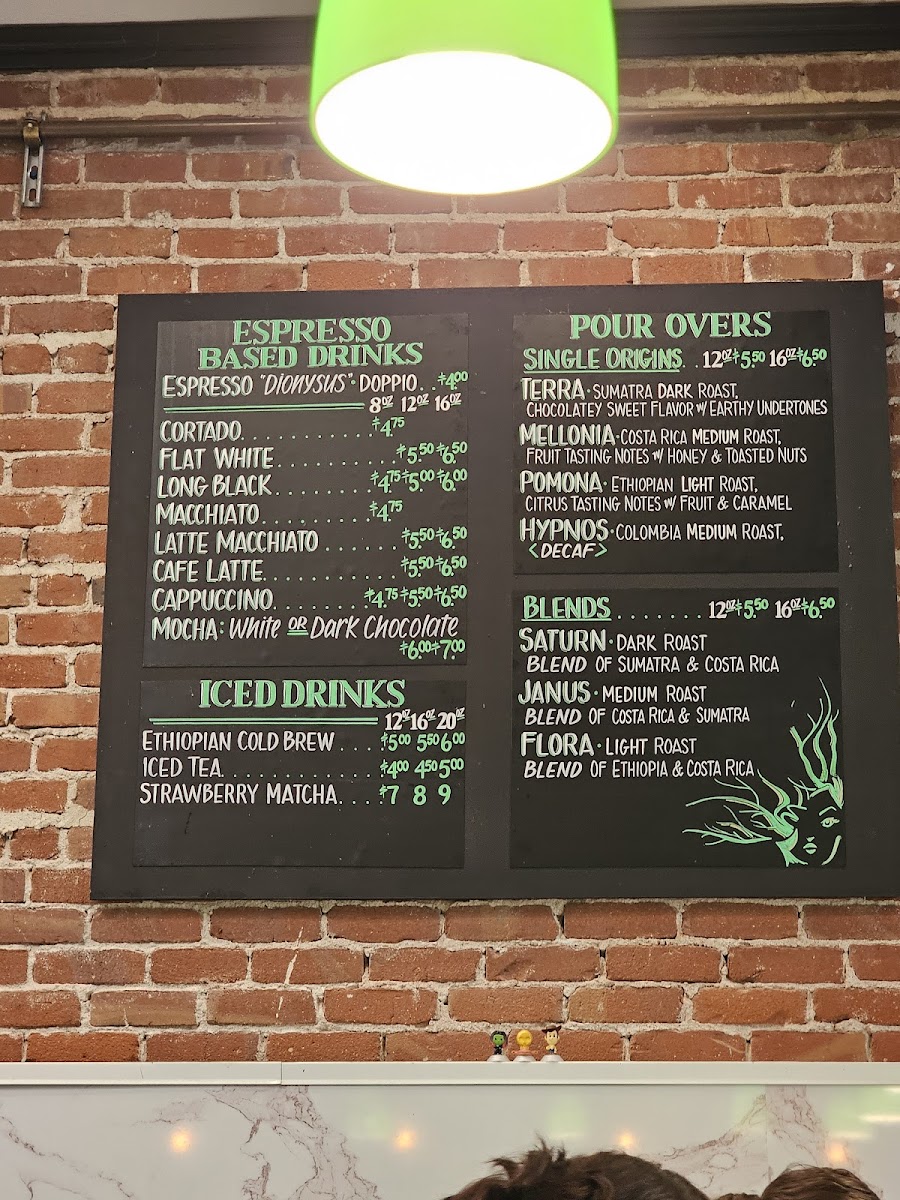 ESPRESSO
BASED DRINKS
ESPRESSO "DIONYSUS" · DOPPIO..$4.00
8OZ 12OZ 16OZ
CORTADO............$4.75
FLAT WHITE............$5.50 $6.50
LONG BLACK.........$4.75 $5.00 $6.00
MACCHIATO..........$4.75
LATTE MACCHIATO.......$5.50 $6.50
CAFE LATTE............$5.50 $6.50
CAPPUCCINO.........$4.75 $5.50 $6.50
MOCHA: White OR Dark Chocolate
$6.00 $7.00
ICED DRINKS
12OZ 16OZ 20OZ
ETHIOPIAN COLD BREW....$5.00 5.50 6.00
ICED TEA.............$4.00 4.50 5.00
STRAWBERRY MATCHA....$7 8 9
POUR OVERS
SINGLE ORIGINS..12OZ $5.50 16OZ $6.50
TERRA · SUMATRA DARK ROAST,
CHOCOLATEY SWEET FLAVOR W/ EARTHY UNDERTONES
MELLONIA · COSTA RICA MEDIUM ROAST,
FRUIT TASTING NOTES W/ HONEY & TOASTED NUTS
POMONA · ETHIOPIAN LIGHT ROAST,
CITRUS TASTING NOTES W/ FRUIT & CARAMEL
HYPNOS · COLOMBIA MEDIUM ROAST,
<DECAF>
BLENDS.......12OZ $5.50 16OZ $6.50
SATURN · DARK ROAST
BLEND OF SUMATRA & COSTA RICA
JANUS · MEDIUM ROAST
BLEND OF COSTA RICA & SUMATRA
FLORA · LIGHT ROAST
BLEND OF ETHIOPIA & COSTA RICA